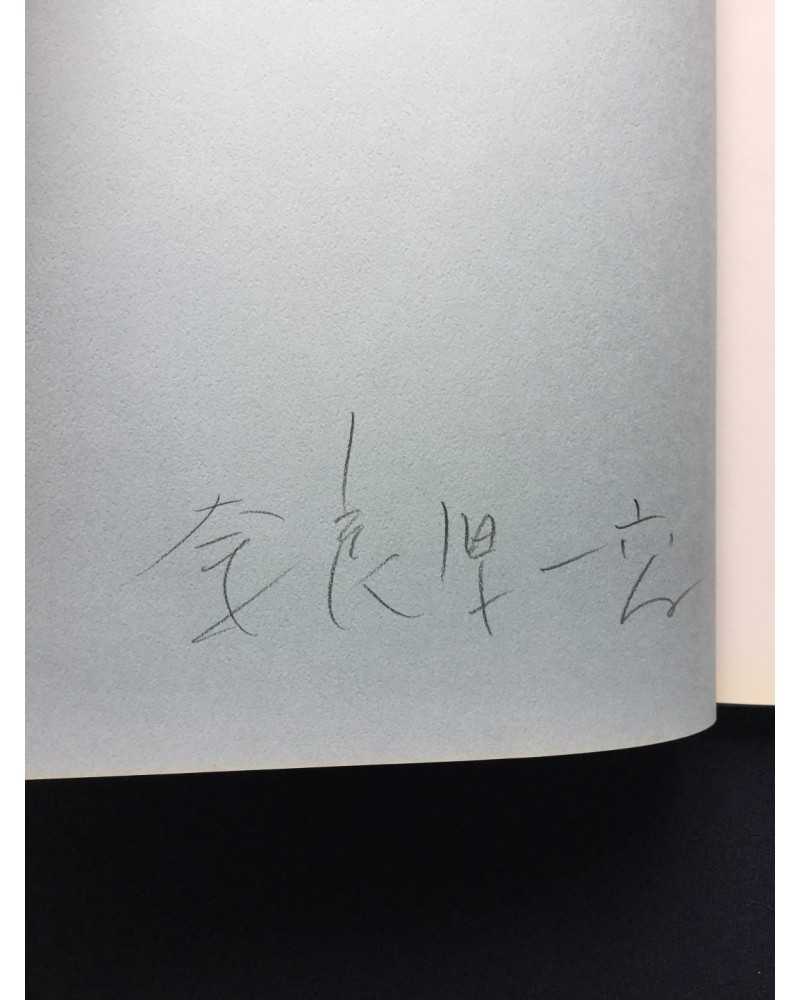 奈良原一高